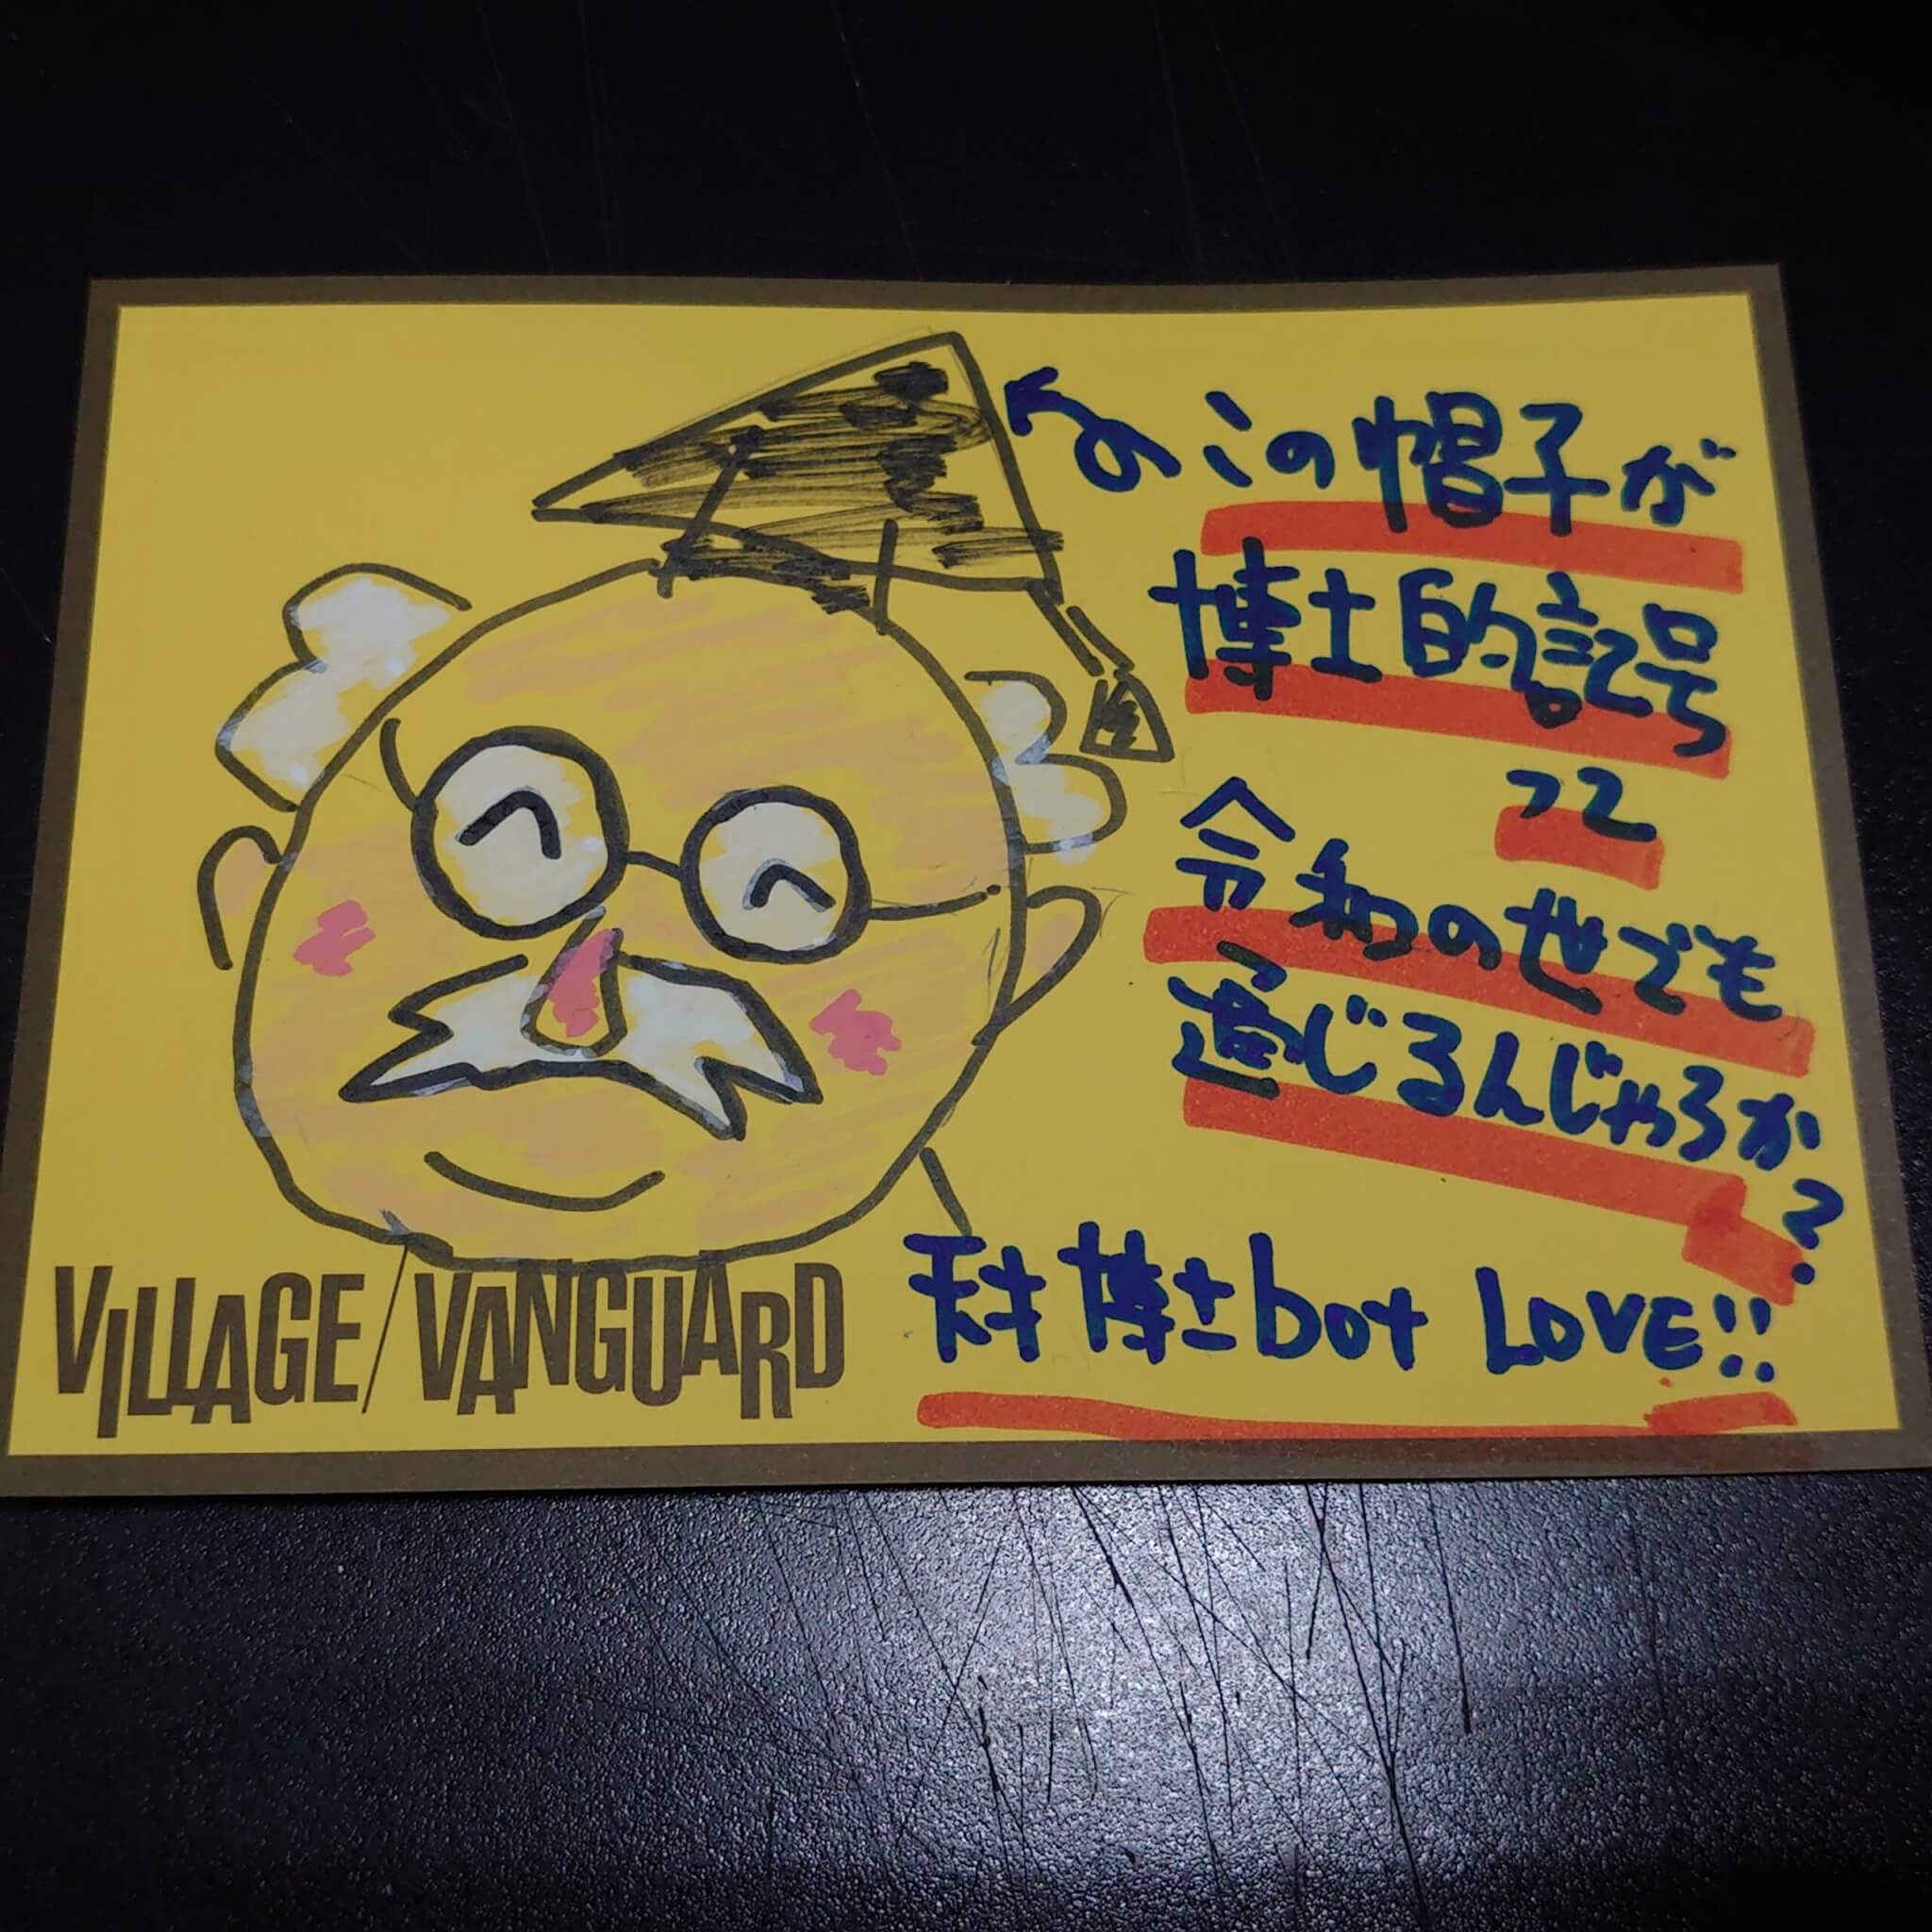 この帽子が
博士的記号
って
令和の世でも
通じるんじゃろか?
天才博士bot LOVE!!
VILLAGE/VANGUARD